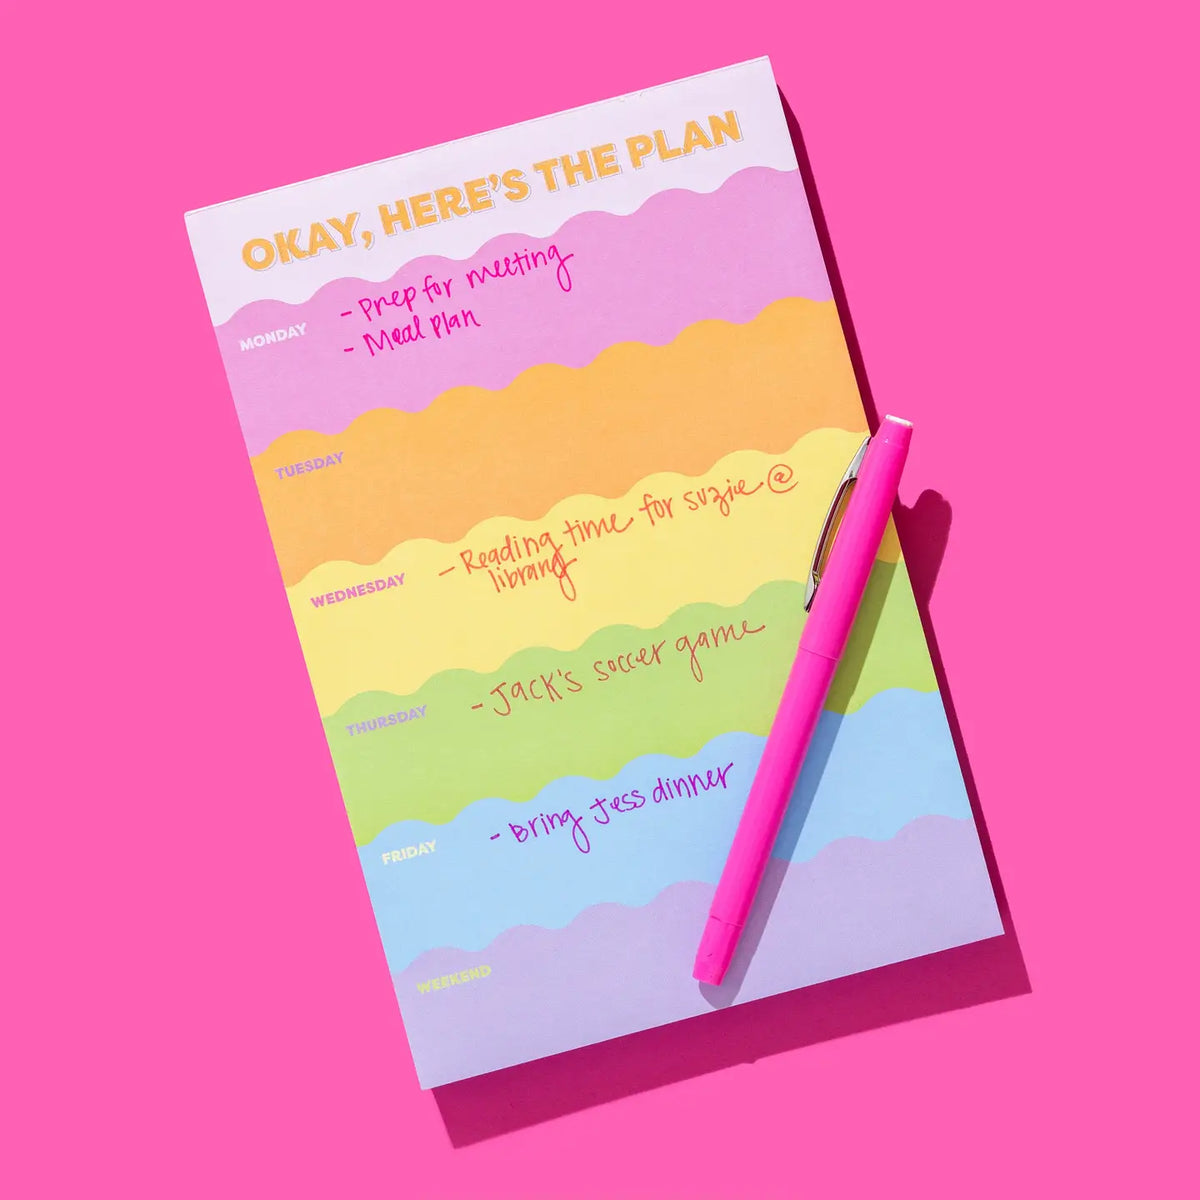 OKAY, HERE'S THE PLAN
MONDAY
- Prep for meeting
- Meal plan
TUESDAY
WEDNESDAY
- Reading time for suzie @
library
THURSDAY
- Jack's soccer game
FRIDAY
- Bring Jess dinner
WEEKEND